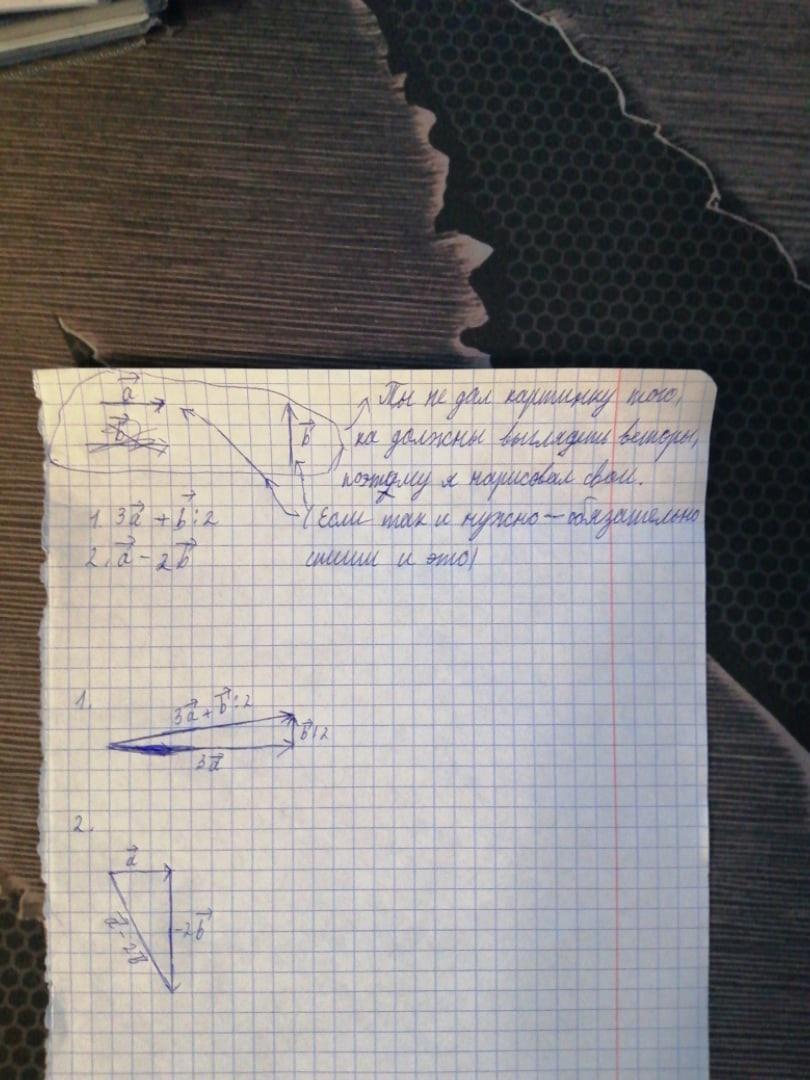 a⃗
b⃗
Ты не дал картинку того,
ка должны выглядеть векторы,
поэтому я нарисовал свои.
1. 3a⃗ + b⃗ : 2
(Если так и нужно — обязательно
2. a⃗ - 2b⃗
спиши и это)
1.
3a⃗ + b⃗ : 2
b⃗ : 2
3a⃗
2.
a⃗
-2b⃗
a⃗ - 2b⃗